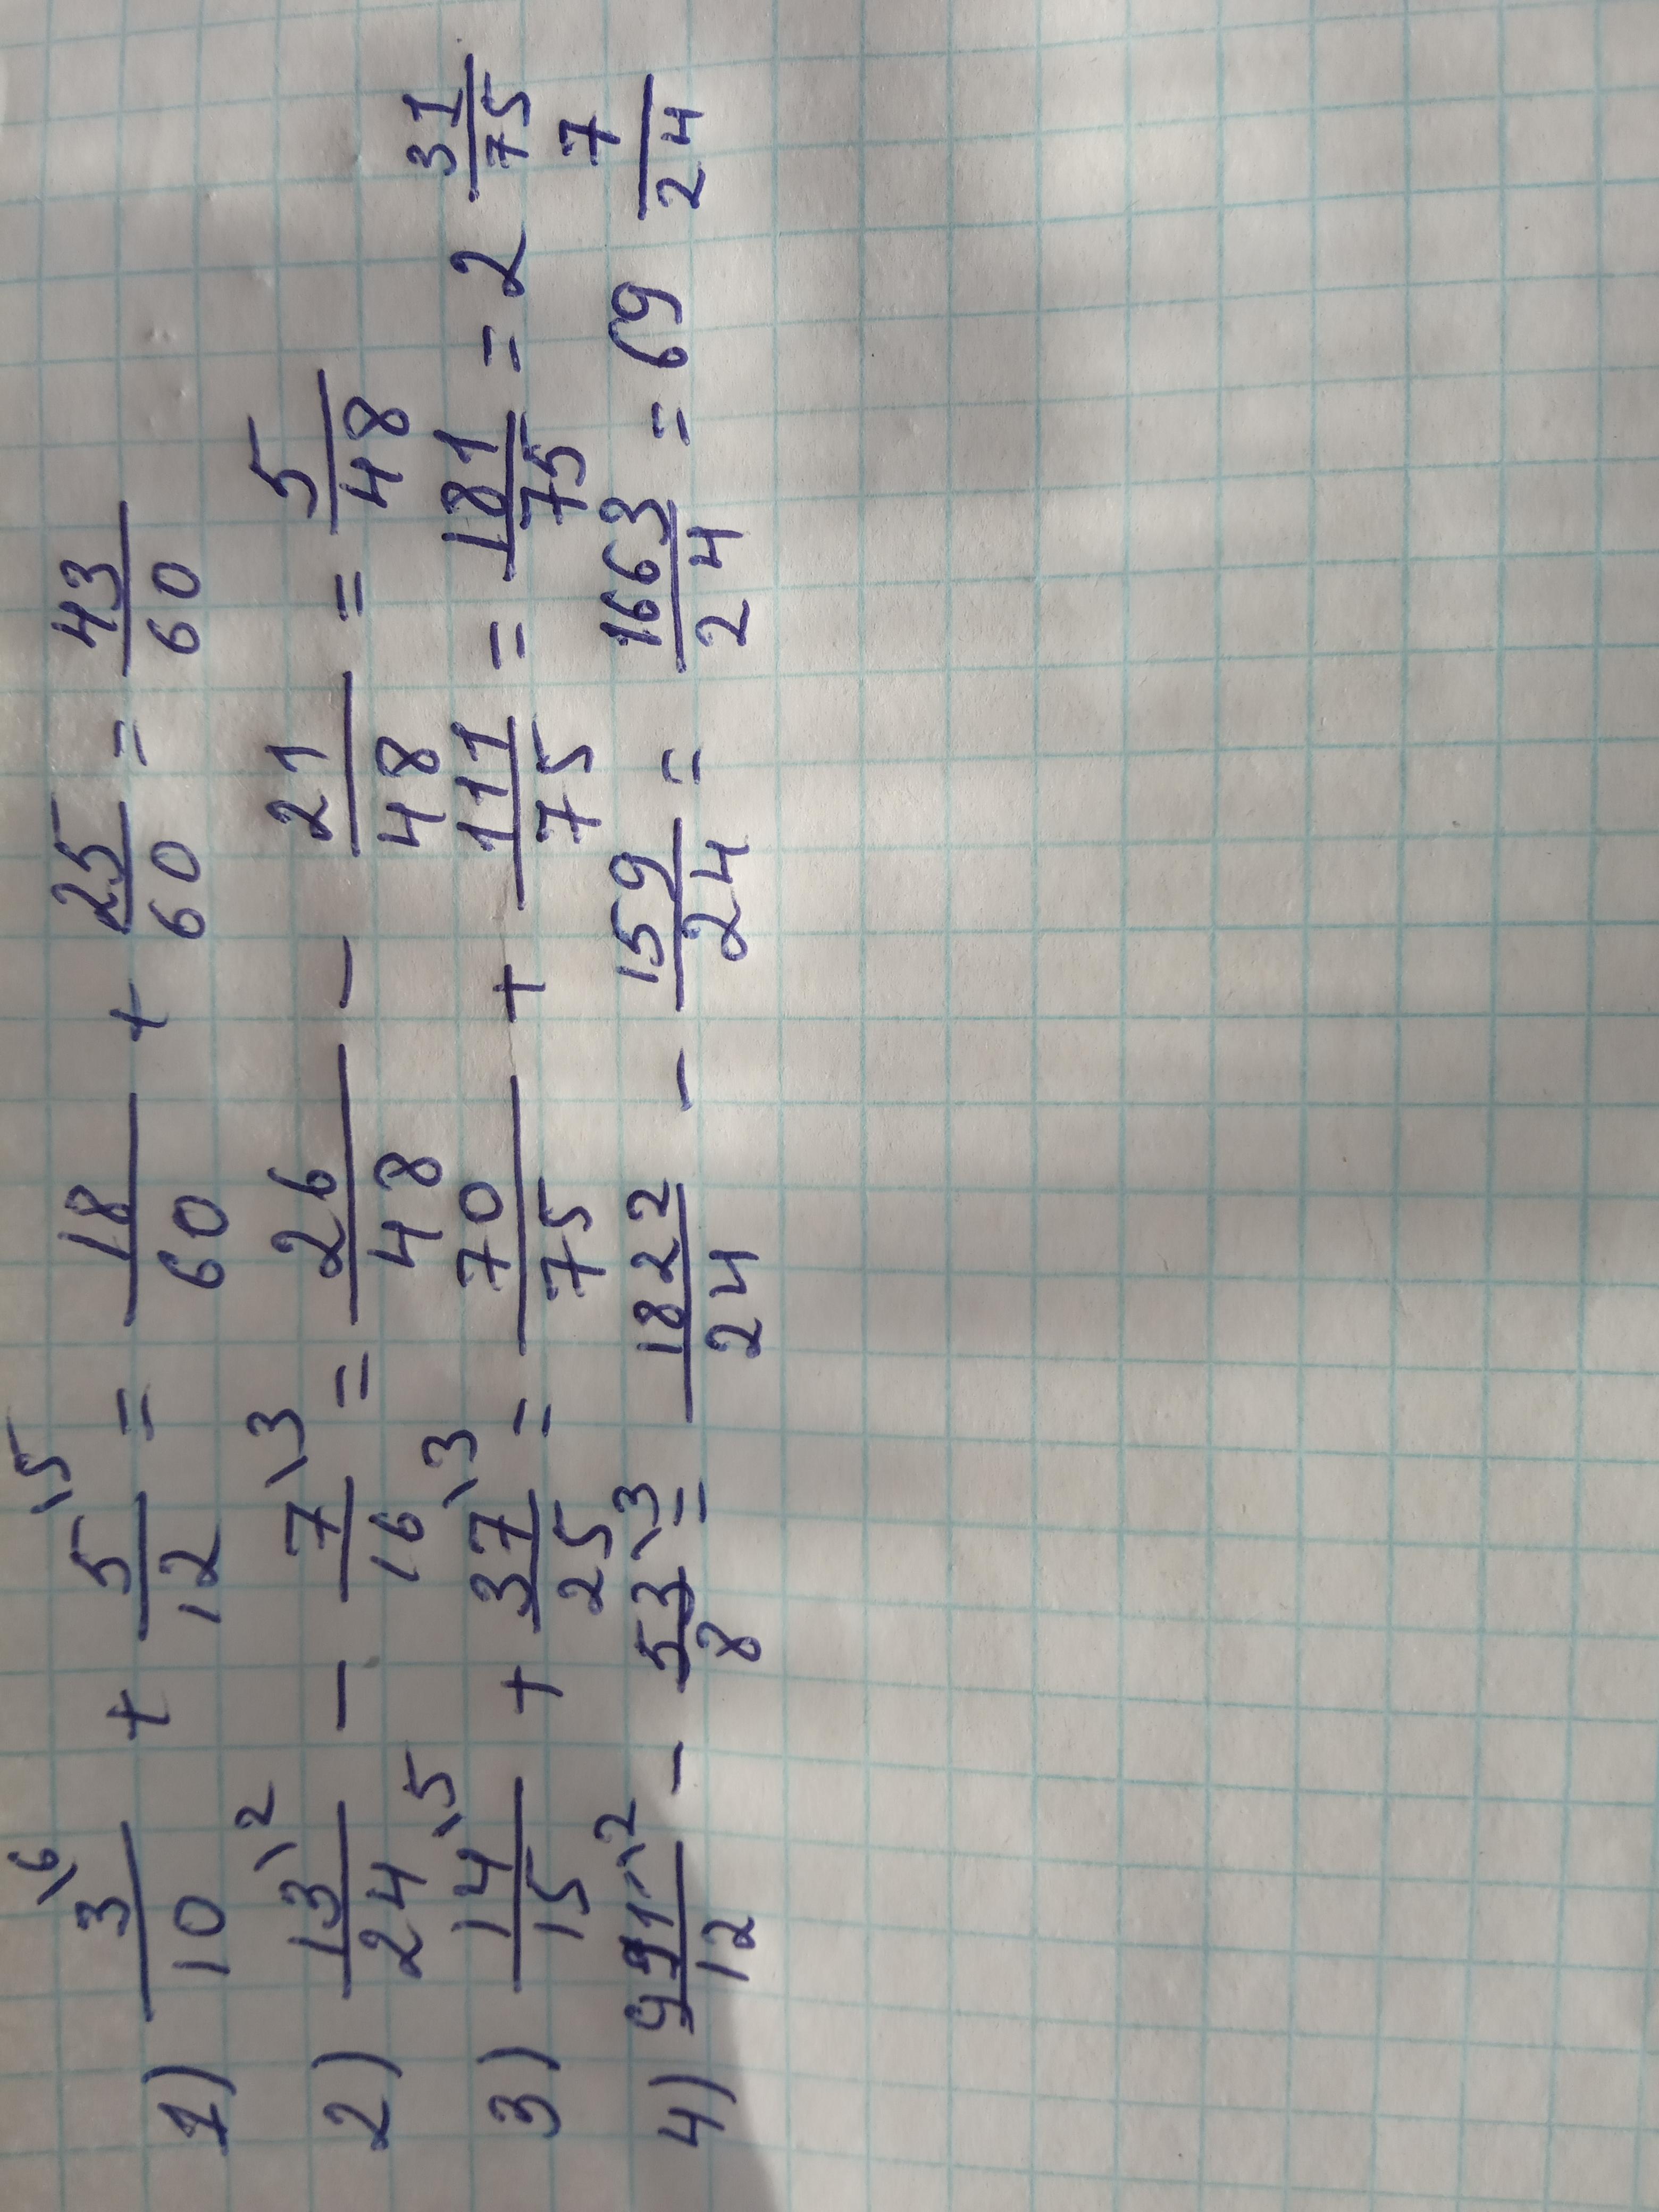 1) 3\6/10 + 5\5/12 = 18/60 + 25/60 = 43/60
2) 13\2/24 - 7\3/16 = 26/48 - 21/48 = 5/48
3) 14\5/15 + 37\3/25 = 70/75 + 111/75 = 181/75 = 2 31/75
4) 911\2/12 - 53\3/8 = 1822/24 - 159/24 = 1663/24 = 69 7/24